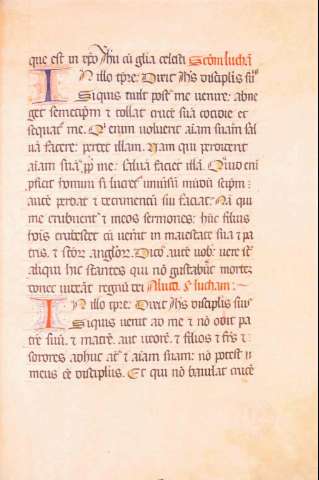 que est in xp̄o Jhū cū glīa celesti Scd̄m luchā
IN illo tp̄re: Dixit Jhs̄ discip̄lis suis
Si quis vult post me venire: abne
get semetip̄m ⁊ tollat crucē suā cotidie et
sequat᷑ me. Qui enim voluerit aīam suam sal
vā facere: perdet illam. Nam qui perdiderit
aīam suā p̄p̄ me: salvā faciet illā. Quid enī
p̄ficit homini si lucret᷑ universū mūdū seip̄m:
autē perdat ⁊ detrimentū sui faciat: Nā qui
me erubuerit ⁊ meos sermones: hūc filius
hoīs erubescet cū venerit in maiestate sua ⁊ pa
tris, ⁊ sctōr̄ angl̄or̄. Dico autē vob̄: vere st̄
aliqui hic stantes qui nō gustabūt mortē
donec videāt regnū dei Aliud. S. lucham:
IN illo tp̄re: Dixit Jhs̄ discip̄lis suis
Si quis venit ad me ⁊ nō odit pa
trē suū. ⁊ matrē. aut uxorē. ⁊ filios ⁊ fr̄s ⁊
sorores adhuc at̄ ⁊ aīam suam: nō potest
meus eē discip̄lus. Et qui nō baiulat crucē